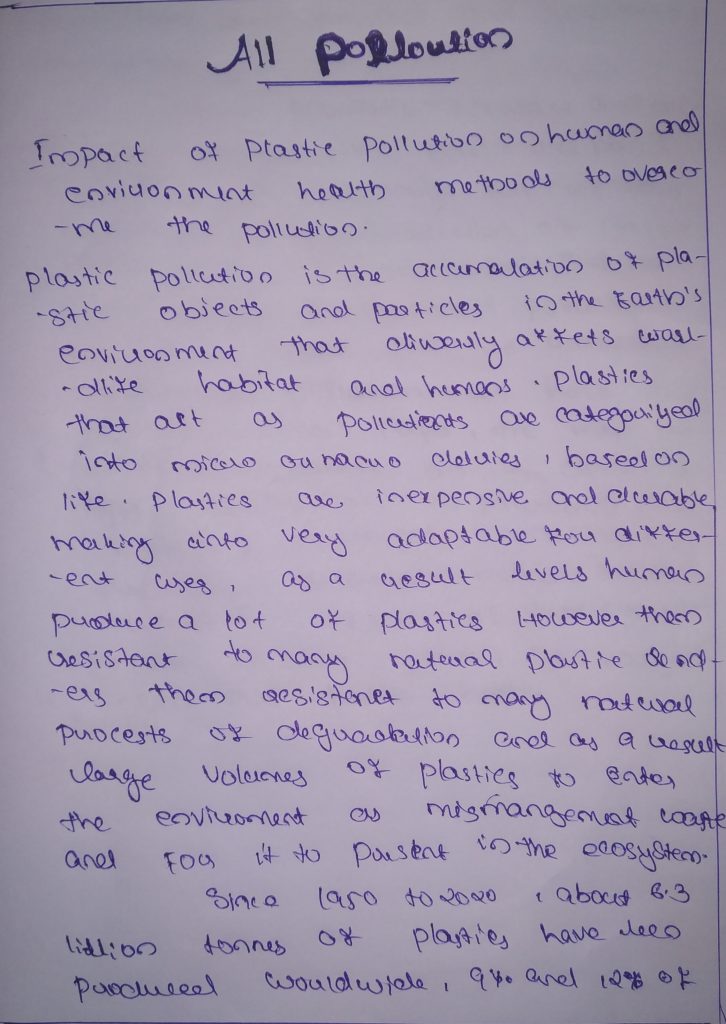 All Polloution
Impact of plastic pollution on human and
environment health methods to overco
-me the pollution.
plastic pollution is the accumalation of pla-
-stic objects and particles in the Earth's
environment that affets
-dlife habitat and humans. plastics
that act as are categorized
into micro or macro , based on
life. plastics are inexpensive and durable
making into very adaptable for differ-
-ent uses, as a result levels human
produce a lot of plastics However them
resistant to many nateural plastic
-ers them to many natural
of and as a result
large volumes of plastics to enter
the enviroment as
and for it to in the ecosystem.
Since 1950 to 2020 , about 8.3
tonnes of plastics have
produced worldwide, 9% and 12% of